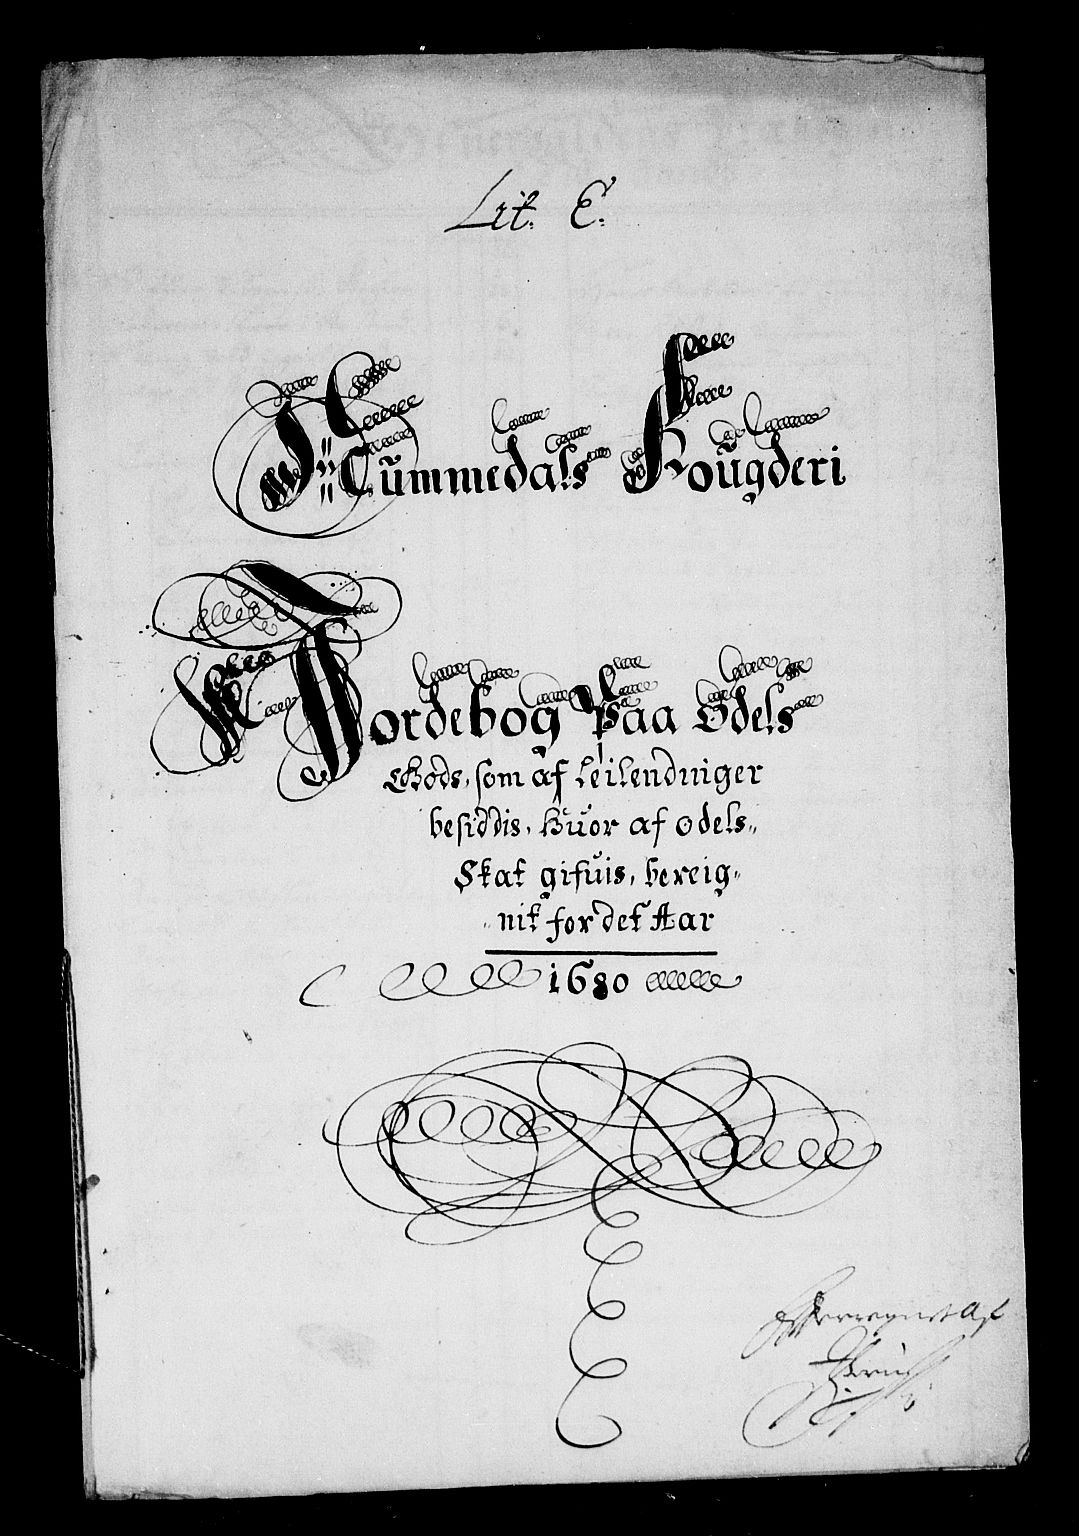 Lit. E.
Nummedals Fougderi
Jordebog Paa Odels
Gods, som af Leilendniger
besiddis, Huor af Odels-
Skat gifuis, bereig-
-nit for det Aar
1680
Efterregnet Af